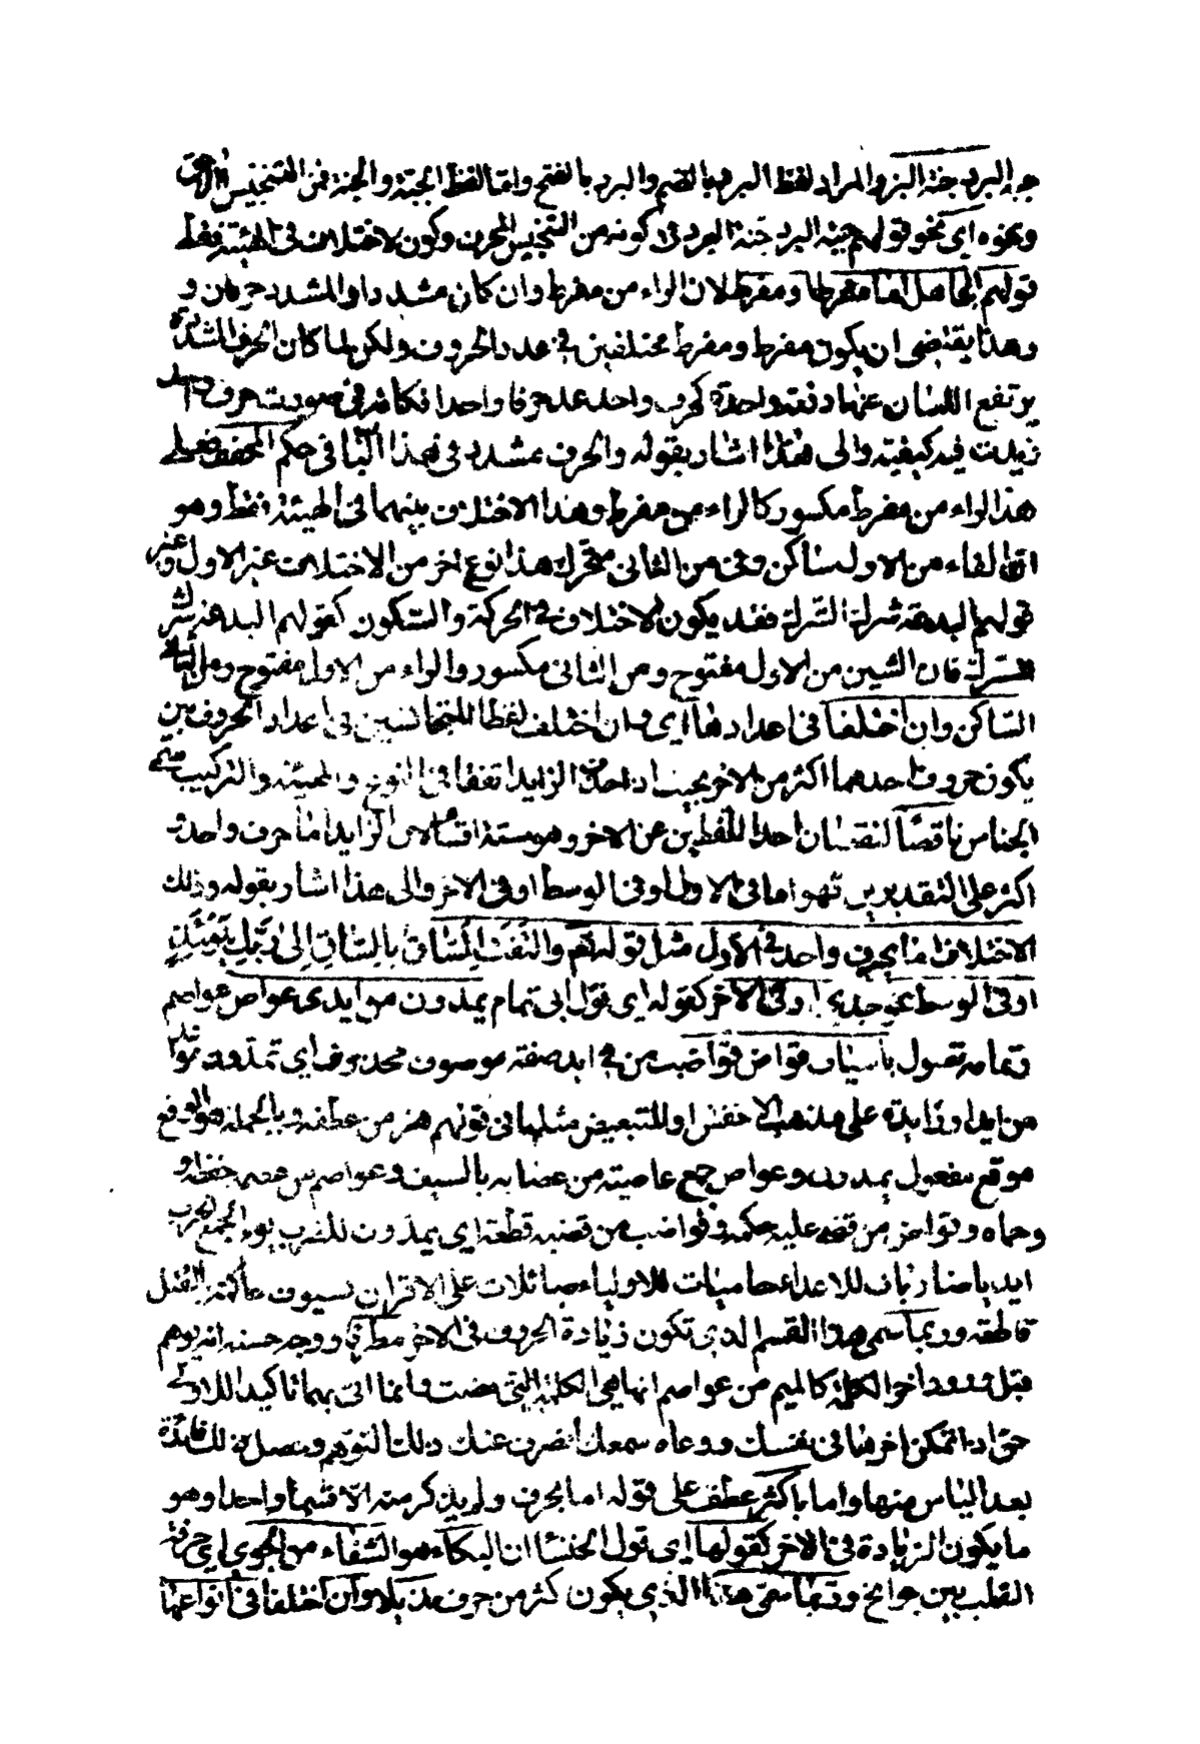 جبة البرد جنة البرد والمراد لفظ البرد بالضم والبرد بالفتح واما لفظ الجبة والجنة فمن التجنيس اللاحق
ونحوه اى نحو قولهم جبة البرد جنة البرد فى كونه من التجنيس المحرف وكون الاختلاف فى الهيئة فقط
قولهم الجاهل اما مفرط او مفرط لان الراء من مفرط وان كان مشددا والمشدد حرفان و
وهذا يقتضى ان يكون مفرط ومفرط مختلفين فى عدد الحروف ولكن لما كان الحرف المشدد
يرتفع اللسان عنها دفعة واحدة كحرف واحد عد حرفا واحدا فكانه فى صورت حرف واحد
زيدت فيه كيفيته والى هذا اشار بقوله والحرف المشدد فى هذا الباب فى حكم المخفف
هذا الراء من مفرط مكسور كالراء من مفرط وهذا الاختلاف بينهما فى الهيئة فقط وهو
ان الفاء من الاول ساكن ومن الثانى متحرك هذا نوع اخر من الاختلاف غير الاول
قولهم البدعة شرك الشرك فقد يكون الاختلاف فى الحركة والسكون كقولهم البدعة شرك
الشرك فان الشين من الاول مفتوح ومن الثانى مكسور والراء من الاول مفتوح ومن الثانى
الساكن وان اختلفا فى اعدادها اى وان اختلف لفظا المتجانسين فى اعداد الحروف بين
يكون حروف احدهما اكثر من الاخر بحيث اذا حذف الزايد اتفقا فى النوع والهيئة والتركيب سمى
الجناس ناقصا لنقصان احد اللفظين عن الاخر وهو ستة اقسام لان الزايد اما حرف واحد او
اكثر على التقديرين فهو اما فى الاول او فى الوسط او فى الاخر والى هذا اشار بقوله وذلك
الاختلاف اما بحرف واحد فى الاول مثل قوله تعم والتفت الساق بالساق الى ربك يومئذ
او فى الوسط نحو جدى او فى الاخر كقوله اى قول ابى تمام يمدون من ايد عواص عواصم
تمامه تصول باسياف قواض قواضب من فى ايد صفة موصوف محذوف اى تمدون
من ايد او زايدة على مذهب الاخفش او للتبعيض مثلها فى قولهم هز من عطفه وبالجملة هو الواقع
موقع مفعول يمدون وعواص جمع عاصية من عصا به بالسيف وعواصم من عصمه حفظه و
وحماه وقواض من قضى عليه حكم وقواضب من قضبه قطعه اى يمدون للضرب يوم الحرب
ايديا ضاربات للاعداء حاميات للاولياء صائلات على الاقران بسيوف حاكمة بالقتل
قاطعة وربما سمى هذا القسم الذى تكون زيادة الحروف فى الاخر مطرفا ووجه حسنه انه يوهم
قبل ورود اخر الكلمة كالميم من عواصم انها هى الكلمة التى مضت وانما اتى بهما تاكيدا للاول
حتى اذا تمكن اخرها فى نفسك ووعاه سمعك انصرف عنك ذلك التوهم وحصل لك فائدة
بعد الياس منها واما باكثر عطف على قوله اما بحرف ولم يذكر منه الا قسما واحدا وهو
ما يكون الزيادة فى الاخر كقولها اى قول الخنسا ان البكاء هو الشفاء من الجوى اى حرقة
القلب بين جوانح وربما سمى هذا الذى يكون اكثر من حرف مذيلا وان اختلفا فى انواعها